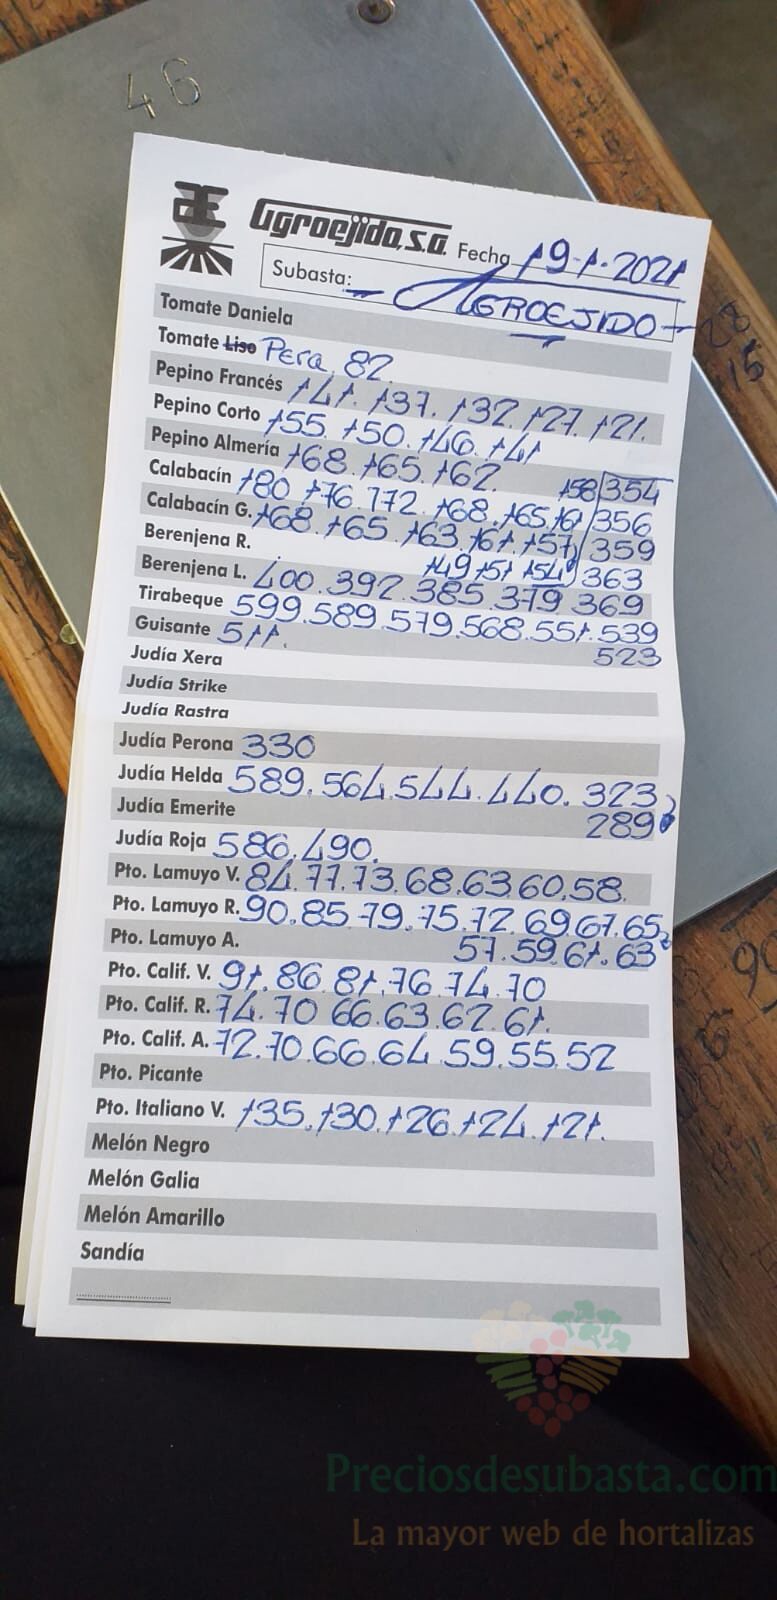 46
Agroejido, s.a. Fecha 19-1-2021
Subasta: AGROEJIDO
28
15
Tomate Daniela
Tomate Liso Pera 82.
Pepino Francés 141. 137. 132. 127. 121.
Pepino Corto 155. 150. 146. 141
Pepino Almería 168. 165. 162. 158 354
Calabacín 180. 176. 172. 168. 165. 161 356
Calabacín G. 168. 165. 163. 161. 157 359
Berenjena R. 149 151 154 363
Berenjena L. 400. 392. 385. 379. 369
Tirabeque 599. 589. 579. 568. 551. 539
Guisante 511. 523
Judía Xera
Judía Strike
Judía Rastra
Judía Perona 330
Judía Helda 589. 564. 544. 440. 323
Judía Emerite 289
Judía Roja 586. 490.
Pto. Lamuyo V. 84. 77. 73. 68. 63. 60. 58.
Pto. Lamuyo R. 90. 85. 79. 75. 72. 69. 67. 65
Pto. Lamuyo A. 57. 59. 61. 63
Pto. Calif. V. 91. 86. 81. 76. 74. 70
Pto. Calif. R. 74. 70 66. 63. 62. 61.
Pto. Calif. A. 72. 70. 66. 64. 59. 55. 52
Pto. Picante
Pto. Italiano V. 135. 130. 126. 124. 121.
Melón Negro
Melón Galia
Melón Amarillo
Sandía
Preciosdesubasta.com
La mayor web de hortalizas